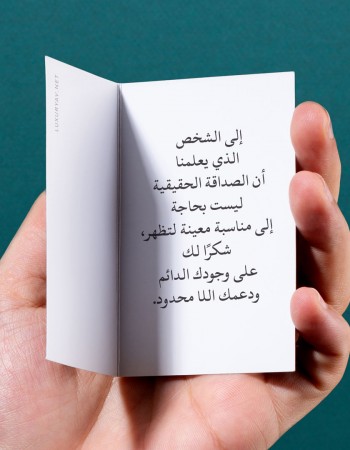 إلى الشخص
الذي يعلمنا
أن الصداقة الحقيقية
ليست بحاجة
إلى مناسبة معينة لتظهر،
شكرًا لك
على وجودك الدائم
ودعمك اللا محدود.